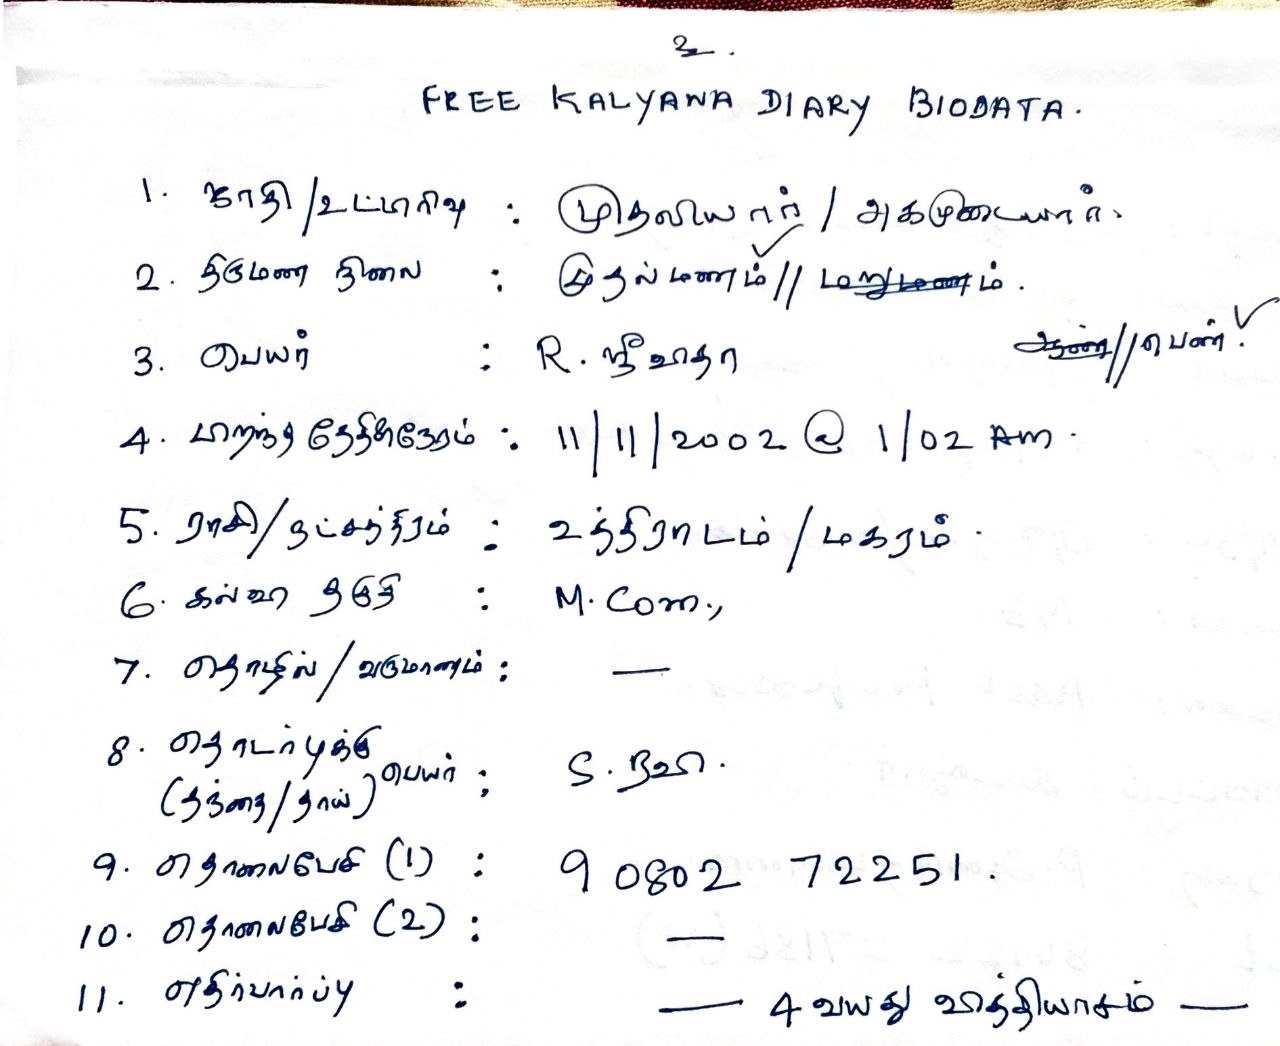 2.
FREE KALYANA DIARY BIODATA.
1. சாதி/உட்பிரிவு : முதலியார் / அகமுடையார்.
2. திருமண நிலை : முதல்மணம் // மறுமணம்.
3. பெயர் : R. ஸ்ரீவிதா ஆண் // பெண்.
4. பிறந்த தேதி&நேரம் : 11/11/2002 @ 1/02 Am.
5. ராசி/நட்சத்திரம் : உத்திராடம் / மகரம்.
6. கல்வி தகுதி : M.Com.,
7. தொழில் / வருமானம் : —
8. தொடர்புக்கு
(தந்தை/தாய்) பெயர் : S. ரவி.
9. தொலைபேசி (1) : 90802 72251.
10. தொலைபேசி (2) : —
11. எதிர்பார்ப்பு : — 4 வயது வித்தியாசம் —